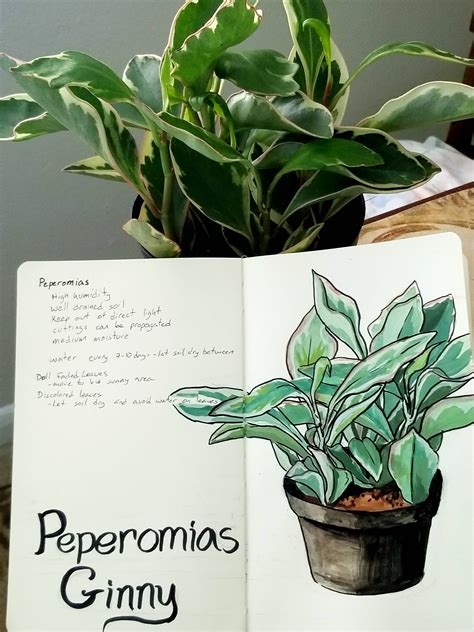 Peperomias
High humidity
well drained soil
Keep out of direct light
cuttings can be propagated
medium moisture
water every 7-10 days - let soil dry between
Dull Faded Leaves
- move to sunny area
Discolored leaves
- let soil dry and avoid water on leaves
Peperomias
Ginny